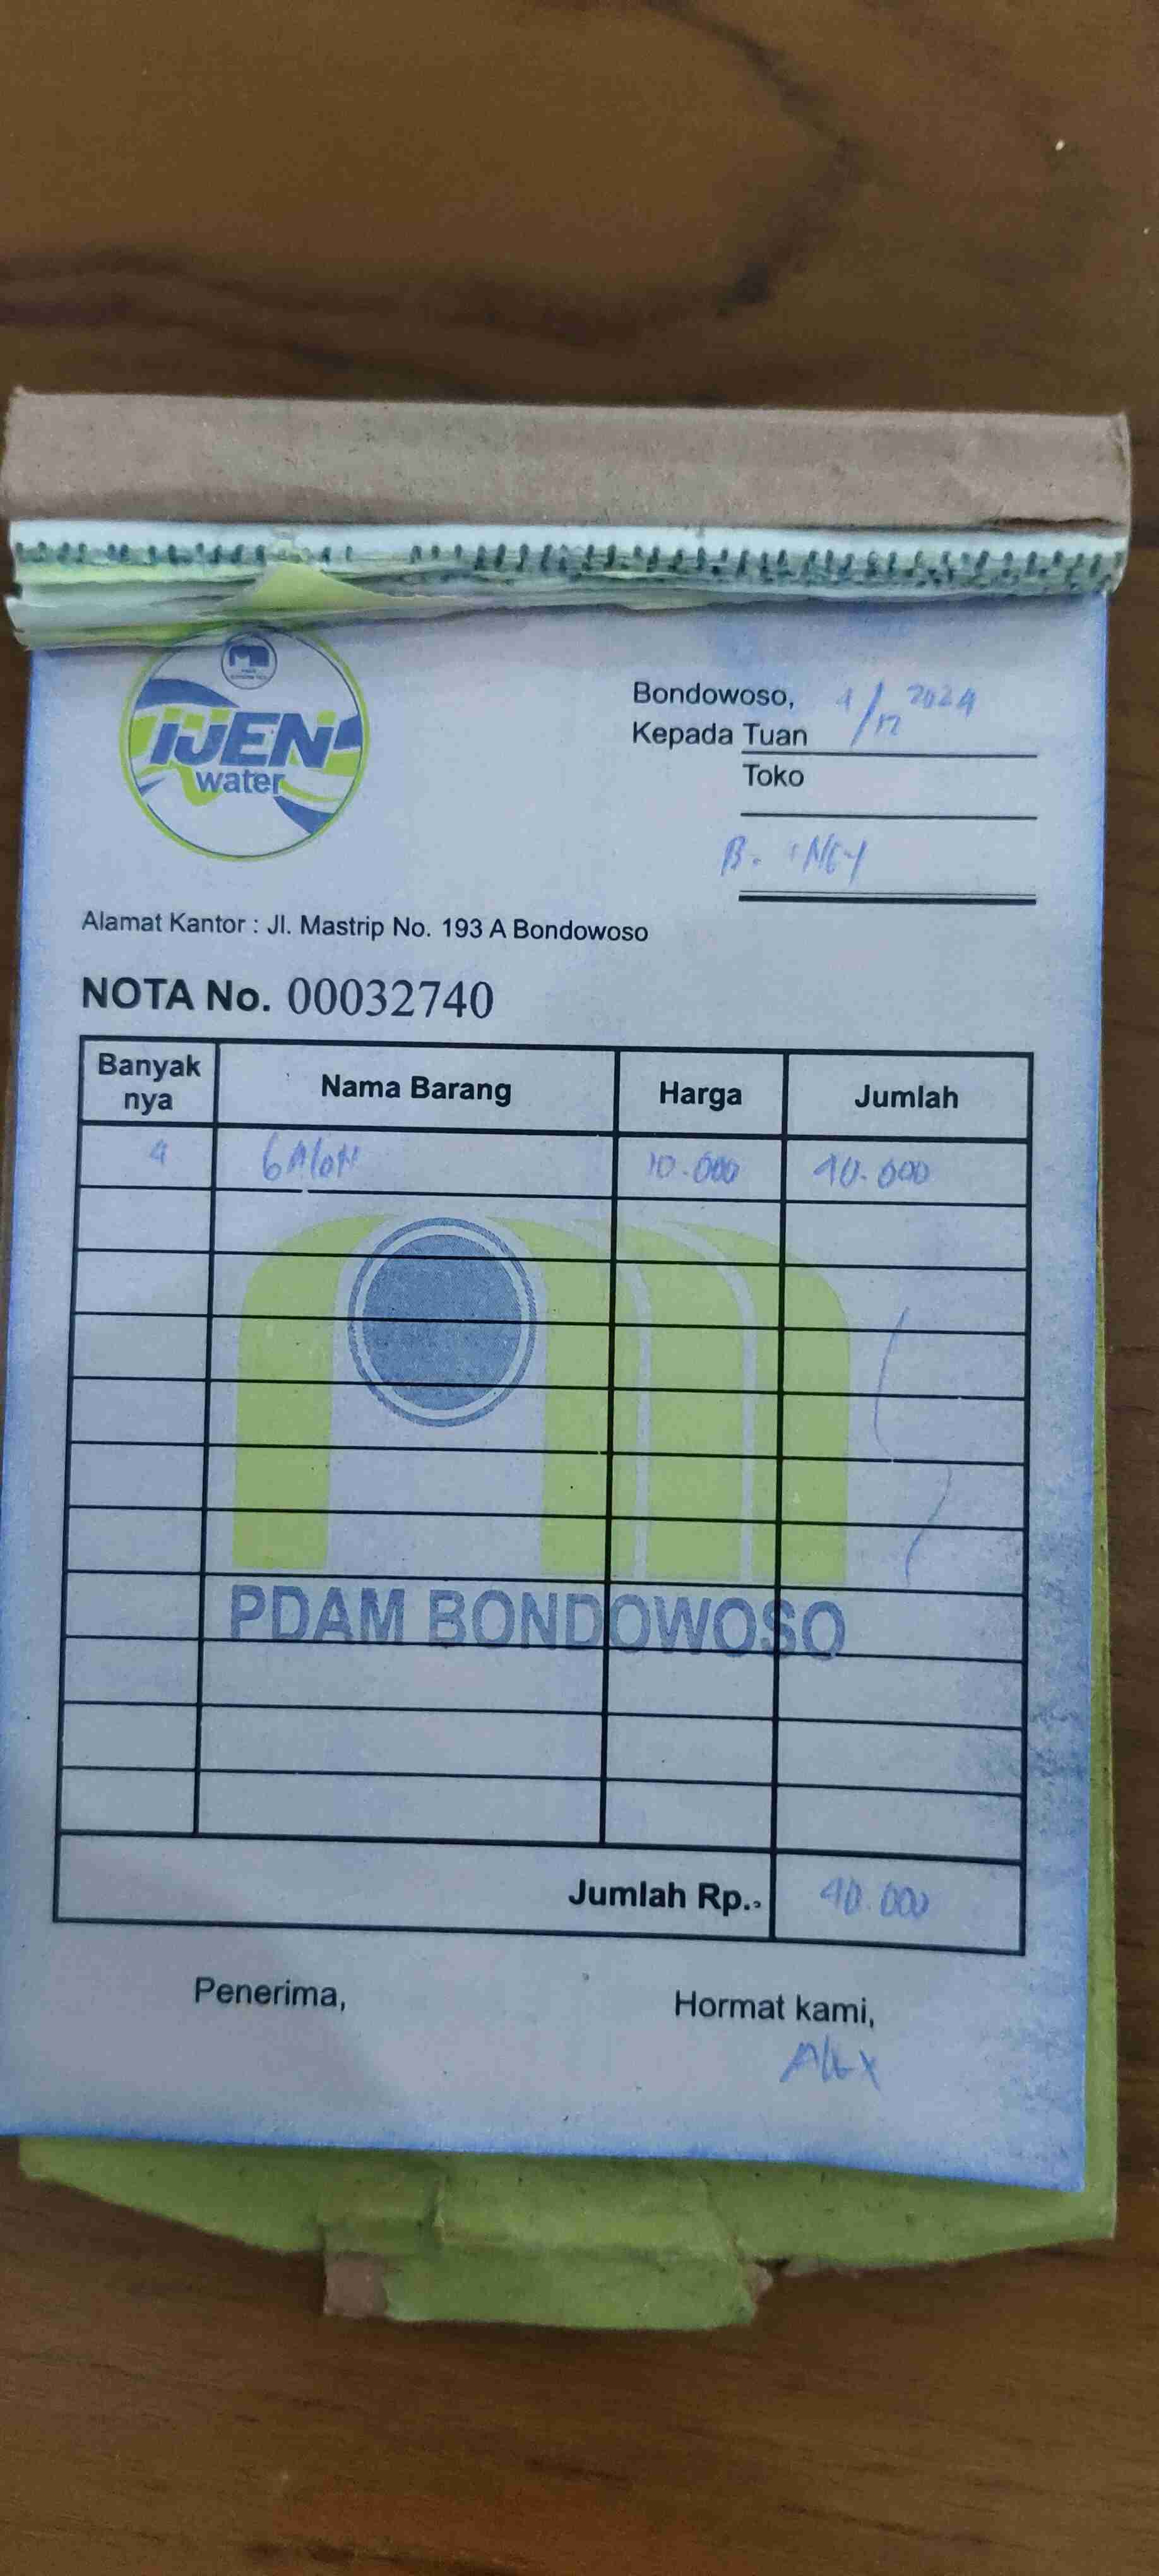 IJEN
water
Bondowoso, 4/12 2024
Kepada Tuan
Toko
B.
Alamat Kantor : Jl. Mastrip No. 193 A Bondowoso
NOTA No. 00032740
Banyak nya Nama Barang Harga Jumlah
4 GAloN 10.000 40.000
PDAM BONDOWOSO
Jumlah Rp.. 40.000
Penerima, Hormat kami,
Alex